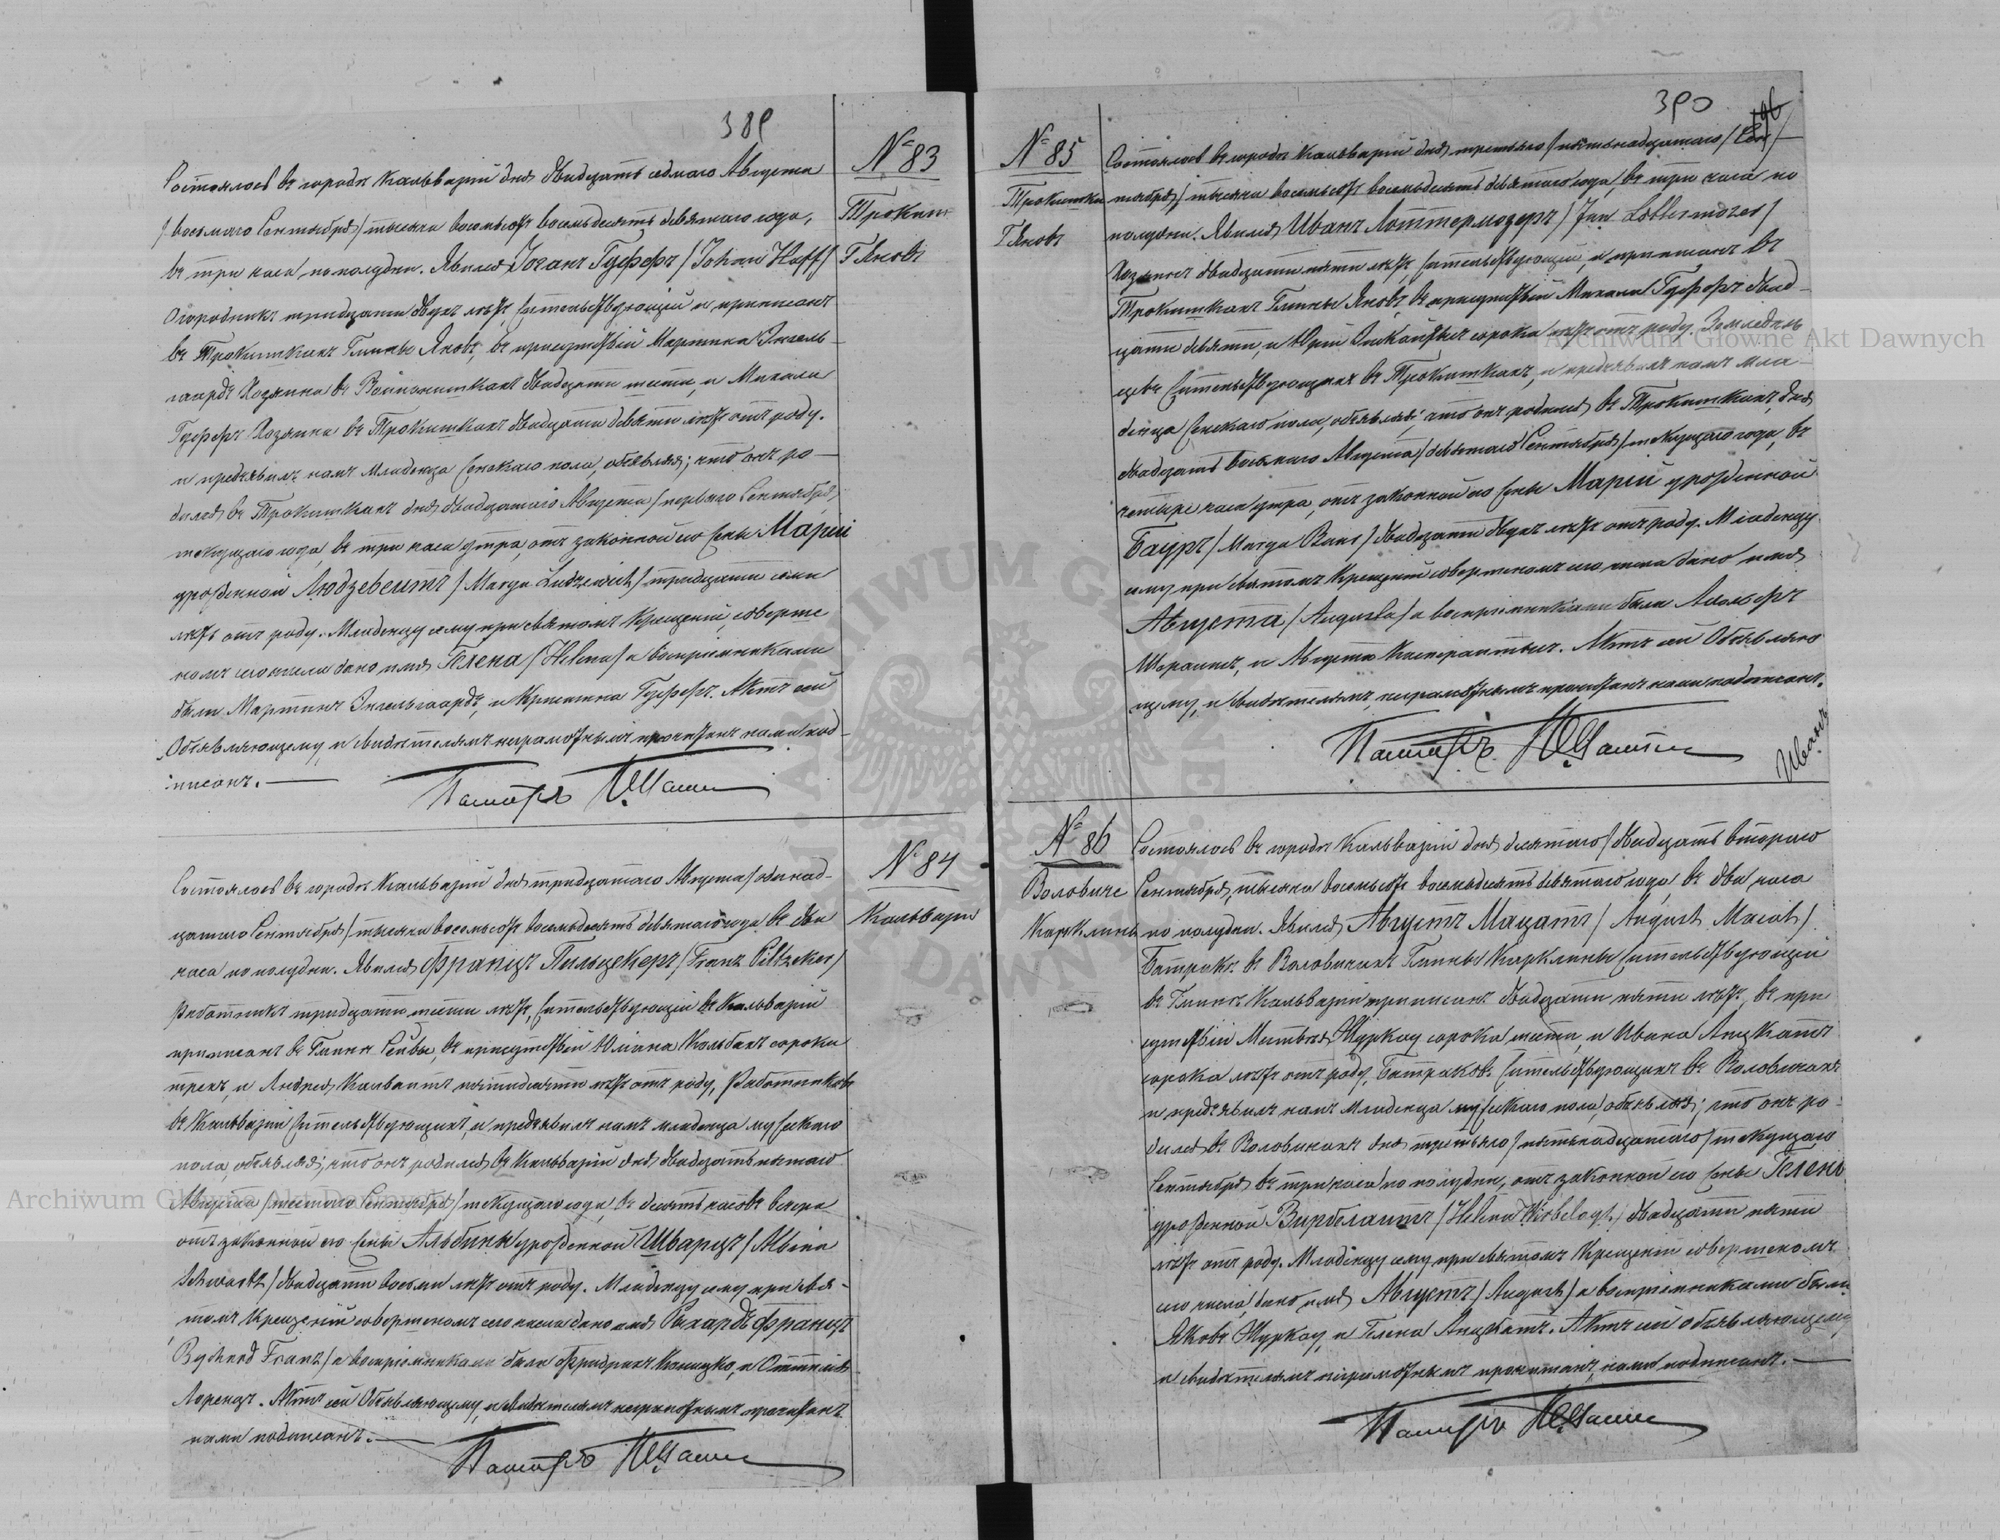 389
№ 83
Трокишк
Г Яновъ
Состоялось въ городѣ Кальваріи дня двадцать седмаго Августа
/ восьмаго Сентября / тысяча восемьсотъ восемьдесятъ девятаго года,
въ три часа по полудни. Явился Іоганъ Гуффъ / Johan Huff /
Огородникъ тридцати двухъ лѣтъ, жительствующій и приписанъ
въ Трокишкахъ Гмины Яновъ, въ присутствіи Мартина Энгель-
гардъ Хозяина въ двадцати шести, и Михаила
Гуффъ Хозяина въ Трокишкахъ двадцати девяти лѣтъ отъ роду.
и предъявилъ намъ Младенца женскаго пола, объявляя; что онъ ро-
дился въ Трокишкахъ дня двадцатаго Августа / перваго Сентября /
текущаго года, въ три часа утра, отъ законной его жены Маріи
урожденной Людзевейтъ / Marya Ludzeweit / тридцати семи
лѣтъ отъ роду. Младенцу сему при святомъ Крещеніи, соверше
номъ сего числа дано имя Гелена / Helena / а воспріемниками
были Мартинъ Энгельгардъ, и Кристина Гуффъ. Актъ сей
Объявляющему, и свидѣтелямъ неграмотнымъ прочитанъ нами под-
писанъ.
Пасторъ
№ 84
Кальвари
Состоялось въ городѣ Кальваріи дня тридцатаго Августа / одинад-
цатаго Сентября / тысяча восемьсотъ восемьдесятъ девятаго года въ два
часа по полудни. Явился Францъ Пильцекеръ / Franz Piltzeker /
Работникъ тридцати шести лѣтъ, жительствующій въ Кальваріи
приписанъ въ Гминѣ въ присутствіи Юліана Кольбахъ сорока
трехъ, и Андрея пятидесяти лѣтъ отъ роду, Работниковъ
въ Кальваріи жительствующихъ, и предъявилъ намъ младенца мужескаго
пола, объявляя; что онъ родился въ Кальваріи дня двадцать пятаго
Августа / шестаго Сентября / текущаго года, въ десять часовъ вечера
отъ законной его жены Альбины урожденной Шварцъ / Albina
Schwartz / двадцати восьми лѣтъ отъ роду. Младенцу сему при свя-
томъ Крещеніи совершеномъ сего числа дано имя Рыхардъ Францъ
Rychard Franz / а воспріемниками были Фридрихъ и
Лоренцъ. Актъ сей Объявляющему, и свидѣтелямъ неграмотнымъ прочитанъ
нами подписанъ.
Пасторъ
390
196
№ 85
Трокишки
Г Яновъ
Состоялось въ городѣ Кальваріи дня третьяго / пятьнадцатаго / Сен /
тября / тысяча восемьсотъ восемьдесятъ девятаго года, въ три часа по
полудни. Явился Иванъ Лоттермозеръ / Jan Lottermozer /
Хозяинъ двадцати пяти лѣтъ, жительствующій, и приписанъ въ
Трокишкахъ Гмины Яновъ, въ присутствіи Михаила Гуффъ двад-
цати девяти, и Юрій сорока лѣтъ отъ роду. Земледѣль
цевъ жительствующихъ въ Трокишкахъ, и предъявилъ намъ мла-
денца женскаго пола, объявляя; что онъ родился въ Трокишкахъ, дня
двадцать восьмаго Августа / девятаго Сентября / текущаго года, въ
четыре часа утра, отъ законной его жены Маріи урожденной
Бауръ / Marya Baur / двадцати двухъ лѣтъ отъ роду. Младенцу
сему при святомъ Крещеніи совершеномъ сего числа дано имя
Августа / Augusta / а воспріемниками были Адольфъ
и Августа Актъ сей Объявляю
щему, и свидѣтелямъ неграмотнымъ прочитанъ нами подписанъ.
Пасторъ
Иванъ
№ 86
Воловиче
Карклины
Состоялось въ городѣ Кальваріи дня десятаго / двадцать втораго
Сентября, тысяча восемьсотъ восемьдесятъ девятаго года, въ два часа
по полудни. Явился Августъ Мацатъ / August Macat /
Батракъ въ Воловичахъ Гмины Карклины жительствующій
въ Гминѣ Кальварій приписанъ двадцати пяти лѣтъ, въ при
сутствіи Матвѣя Журкау сорока шести, и Ивана Анцкатъ
сорока лѣтъ отъ роду, Батраковъ жительствующихъ въ Воловичахъ
и предъявилъ намъ Младенца мужескаго пола, объявляя; что онъ ро-
дился въ Воловичахъ дня третьяго / пятьнадцатаго / текущаго
Сентября въ три часа по полудни, отъ законной его жены Гелены
урожденной Вирбелайтъ / Helena / двадцати пяти
лѣтъ отъ роду. Младенцу сему при святомъ Крещеніи совершеномъ
сего числа, дано имя Августъ / August / а воспріемниками были
Яковъ Журкау, и Гелена Анцкатъ. Актъ сей объявляющему
и свидѣтелямъ неграмотнымъ прочитанъ, нами подписанъ.
Пасторъ
Archiwum Główne Akt Dawnych
Archiwum Główne Akt Dawnych